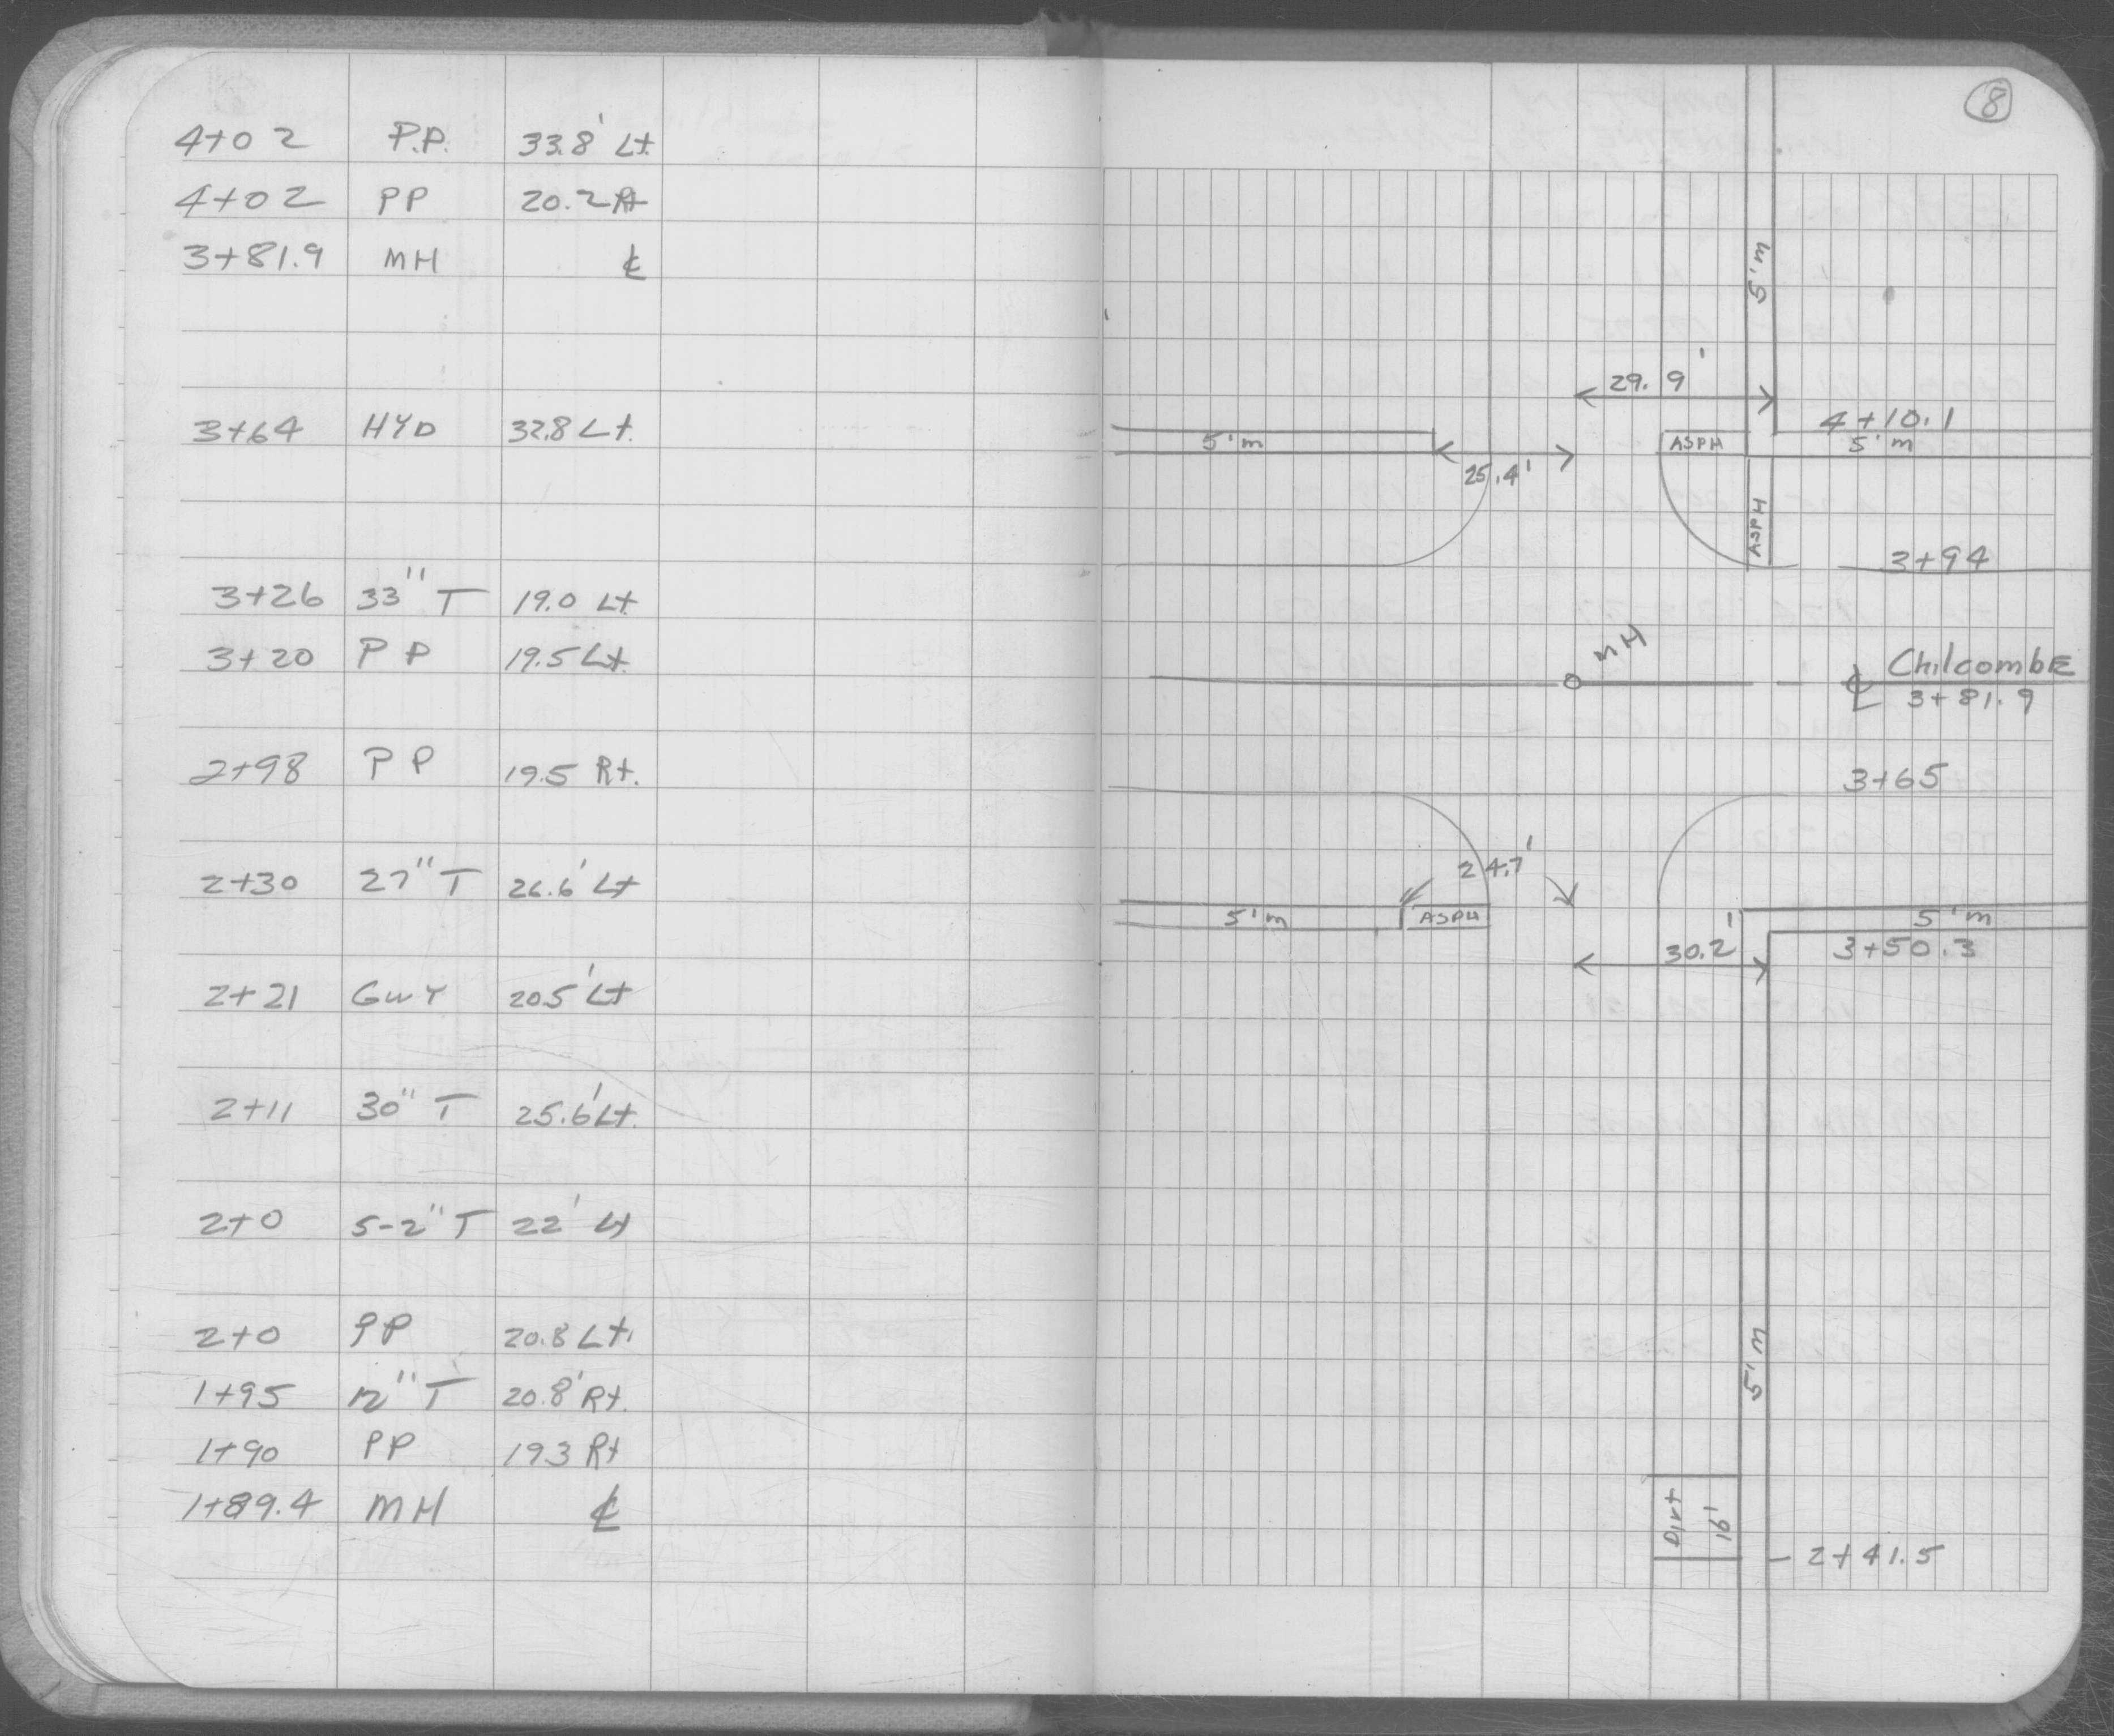 8
4+02 P.P. 33.8' Lt
4+02 PP 20.2 Rt
3+81.9 MH ℄
3+64 HYD 32.8 Lt.
3+26 33" T 19.0 Lt
3+20 PP 19.5 Lt
2+98 PP 19.5 Rt.
2+30 27" T 26.6' Lt
2+21 GWY 20.5' Lt
2+11 30" T 25.6' Lt.
2+0 5-2" T 22' Lt
2+0 PP 20.8 Lt.
1+95 12" T 20.8' Rt.
1+90 PP 19.3 Rt
1+89.4 MH ℄
5'm
29.9'
4+10.1
5'm
ASPH
5'm
25.4'
ASPH
3+94
MH
℄ Chilcombe
3+81.9
3+65
24.7'
5'm
ASPH
5'm
30.2'
3+50.3
5'm
Dirt
16'
2+41.5